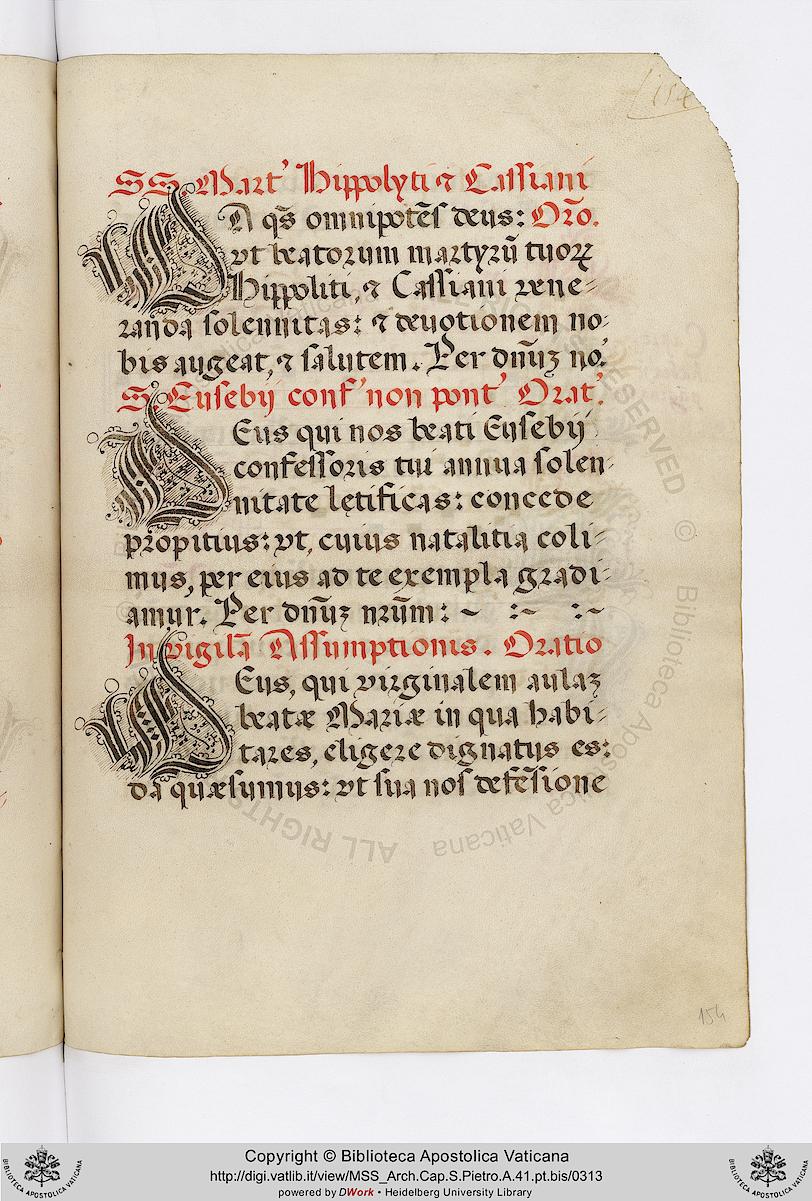 154
SS. Mart' Hippolyti ⁊ Cassiani
DA qs̄ omnipotēs deus: Orō.
vt beatorum martyrū tuoꝝ
Hippoliti, ⁊ Cassiani vene-
randa solennitas: ⁊ deuotionem no-
bis augeat, ⁊ salutem. Per dn̄uꝫ no.
S. Eusebij conf' non pont' Orat'.
DEus qui nos beati Eusebij
confessoris tui annua solen-
nitate lętificas: concede
propitius: vt, cuius natalitia coli-
mus, per eius ad te exempla gradi-
amur. Per dn̄uꝫ nr̄um: ~ :~ :~
In vigilā Assumptionis. Oratio
DEus, qui virginalem aulaꝫ
beatæ Mariæ in qua habi-
tares, eligere dignatus es:
da quæsumus: vt sua nos defēsione
154
ALL RIGHTS RESERVED © Biblioteca Apostolica Vaticana
Copyright © Biblioteca Apostolica Vaticana
http://digi.vatlib.it/view/MSS_Arch.Cap.S.Pietro.A.41.pt.bis/0313
powered by DWork • Heidelberg University Library
BIBLIOTECA APOSTOLICA VATICANA
BIBLIOTECA APOSTOLICA VATICANA